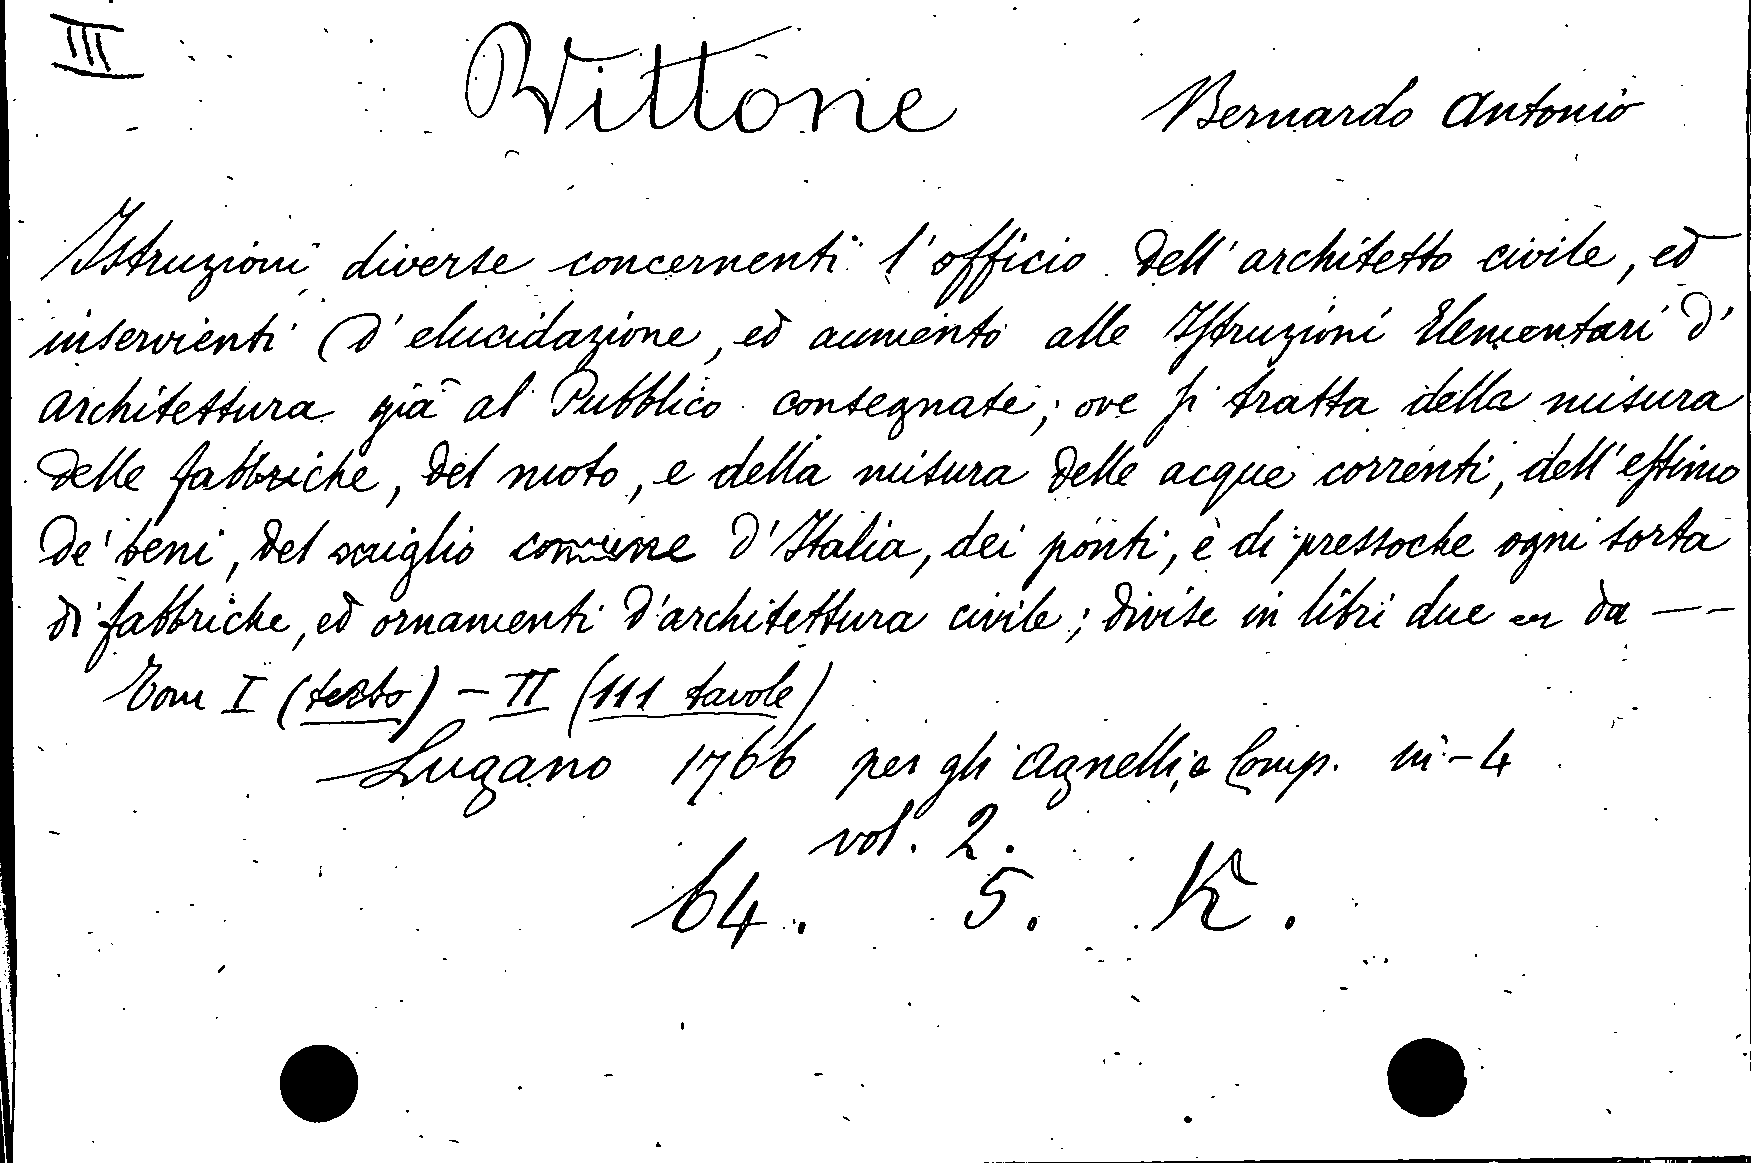 III
Vittone Bernardo Antonio
Istruzioni diverse concernenti l'officio dell'architetto civile, ed
inservienti d'elucidazione, ed aumento alle Istruzioni Elementari d'
architettura già al Pubblico consegnate; ove si tratta della misura
delle fabbriche, del moto, e della misura delle acque correnti, dell'estimo
de' beni, del miglio comune d'Italia, dei ponti, e di pressoche ogni sorta
di fabbriche, ed ornamenti d'architettura civile; divise in libri due da --
Tom I (testo) - II (111 tavole)
Lugano 1766 per gli Agnelli, e Comp. in-4
vol. 2.
64. 5. K.